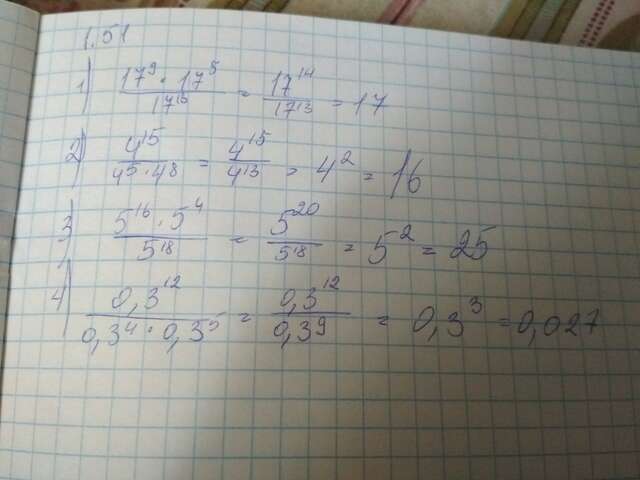 1.51
1) 17⁹ · 17⁵ / 17¹³ = 17¹⁴ / 17¹³ = 17
2) 4¹⁵ / 4⁵ · 4⁸ = 4¹⁵ / 4¹³ = 4² = 16
3) 5¹⁶ · 5⁴ / 5¹⁸ = 5²⁰ / 5¹⁸ = 5² = 25
4) 0,3¹² / 0,3⁴ · 0,3⁵ = 0,3¹² / 0,3⁹ = 0,3³ = 0,027